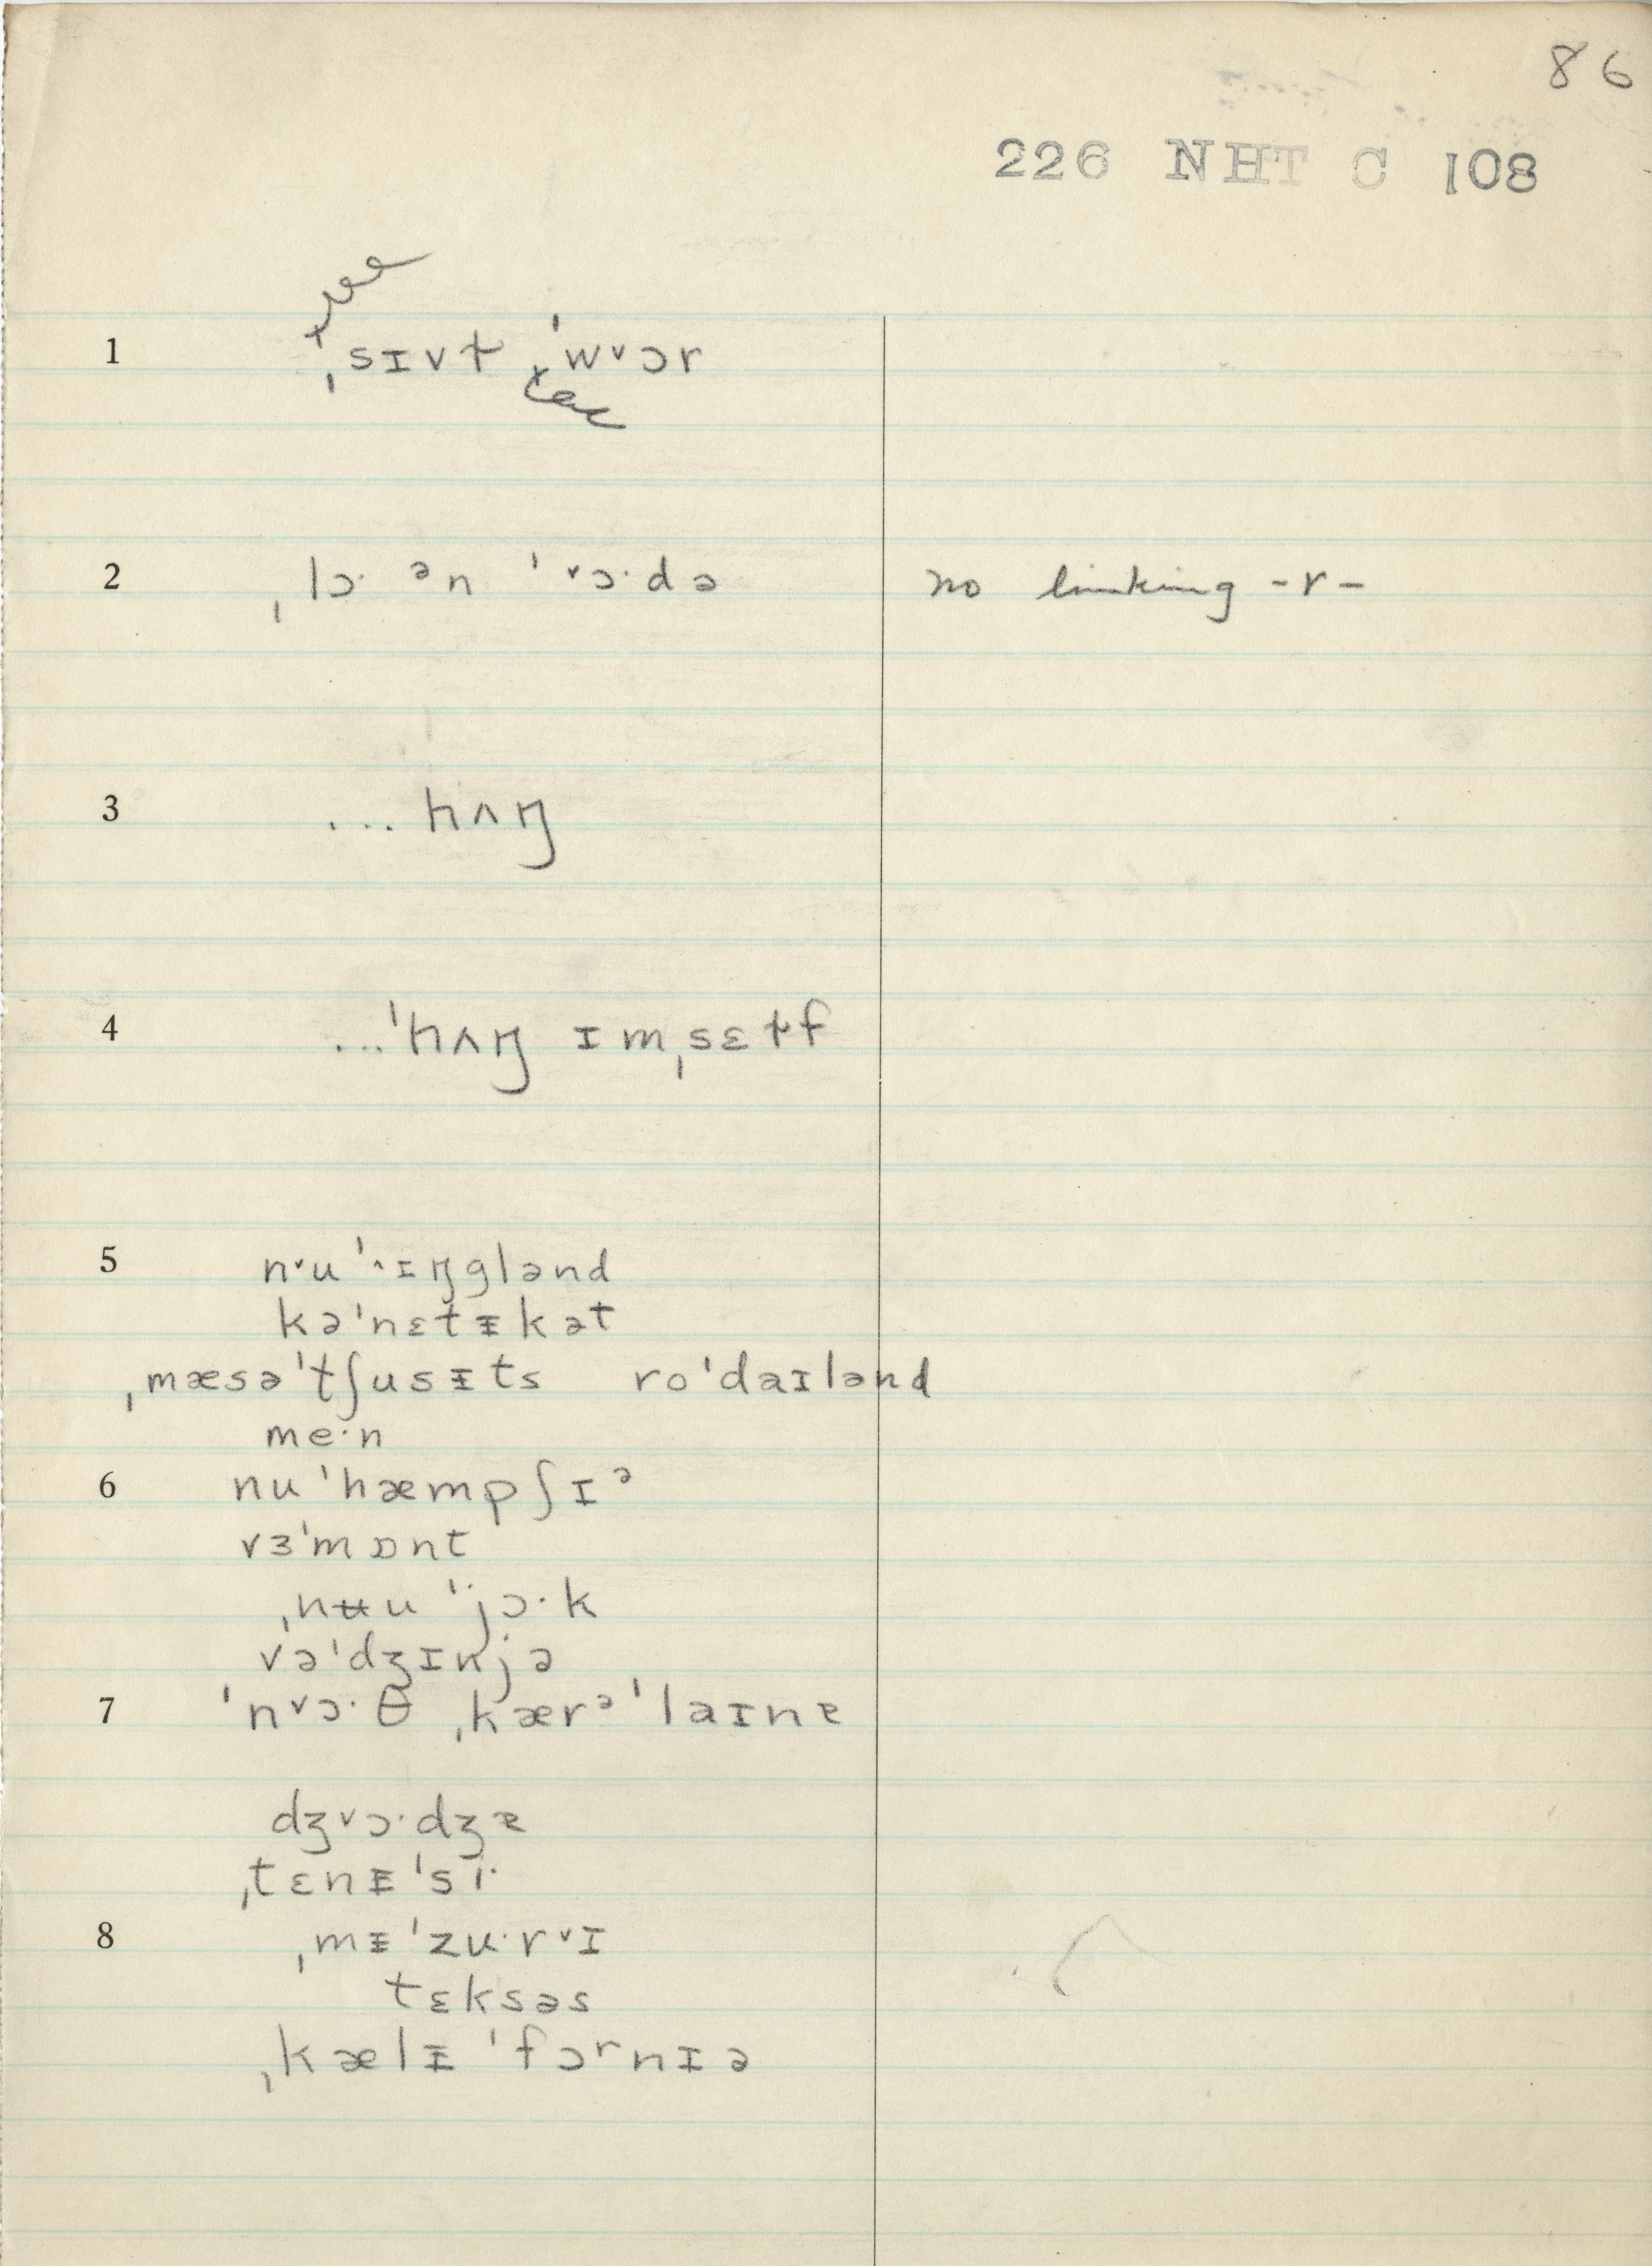 86
226 NHT C 108
1 ˌsɪvɫ ˈwᵛɔr
2 ˌlɔ· ᵊn ˈᵛɔ·də no linking -r-
3 ... hʌŋ
4 ...ˈhʌŋ ɪmˌsɛɫf
5 nᵛu ˈ^ɪŋglənd
kəˈnɛtᵻkət
ˌmæsəˈtʃusᵻts roˈdaɪlənd
me·n
6 nuˈhæmpʃɪᵊ
vɜˈmɒnt
ˌnʉu ˈjɔ·k
vəˈdʒɪnjə
7 ˈnᵛɔ·θ ˌkærᵊˈlaɪnɐ
dʒᵛɔ·dʒɐ
ˌtɛnᵻˈsi·
8 ˌmᵻˈzu·rᵛɪ
tɛksəs
ˌkælᵻˈfɔʳnɪə